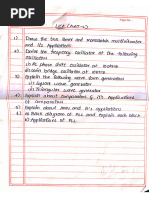 Page No.
LICA (Unit-2)
1) Draw the 555 timer and monostable multivibrator
and It's Applications.
2) Derive the frequency oscillator of the following
oscillators
i) RC phase shift oscillator at entire
ii) wein bridge oscillator at entire
3) Explain the following wave form generators
i) square wave form generator
ii) Triangular wave form generator.
4) Explain about comparators & it's Applications
of comparators
5) Explain about and it's application.
6) a) Block diagram of PLL and explain each block
b) Applications of PLL.